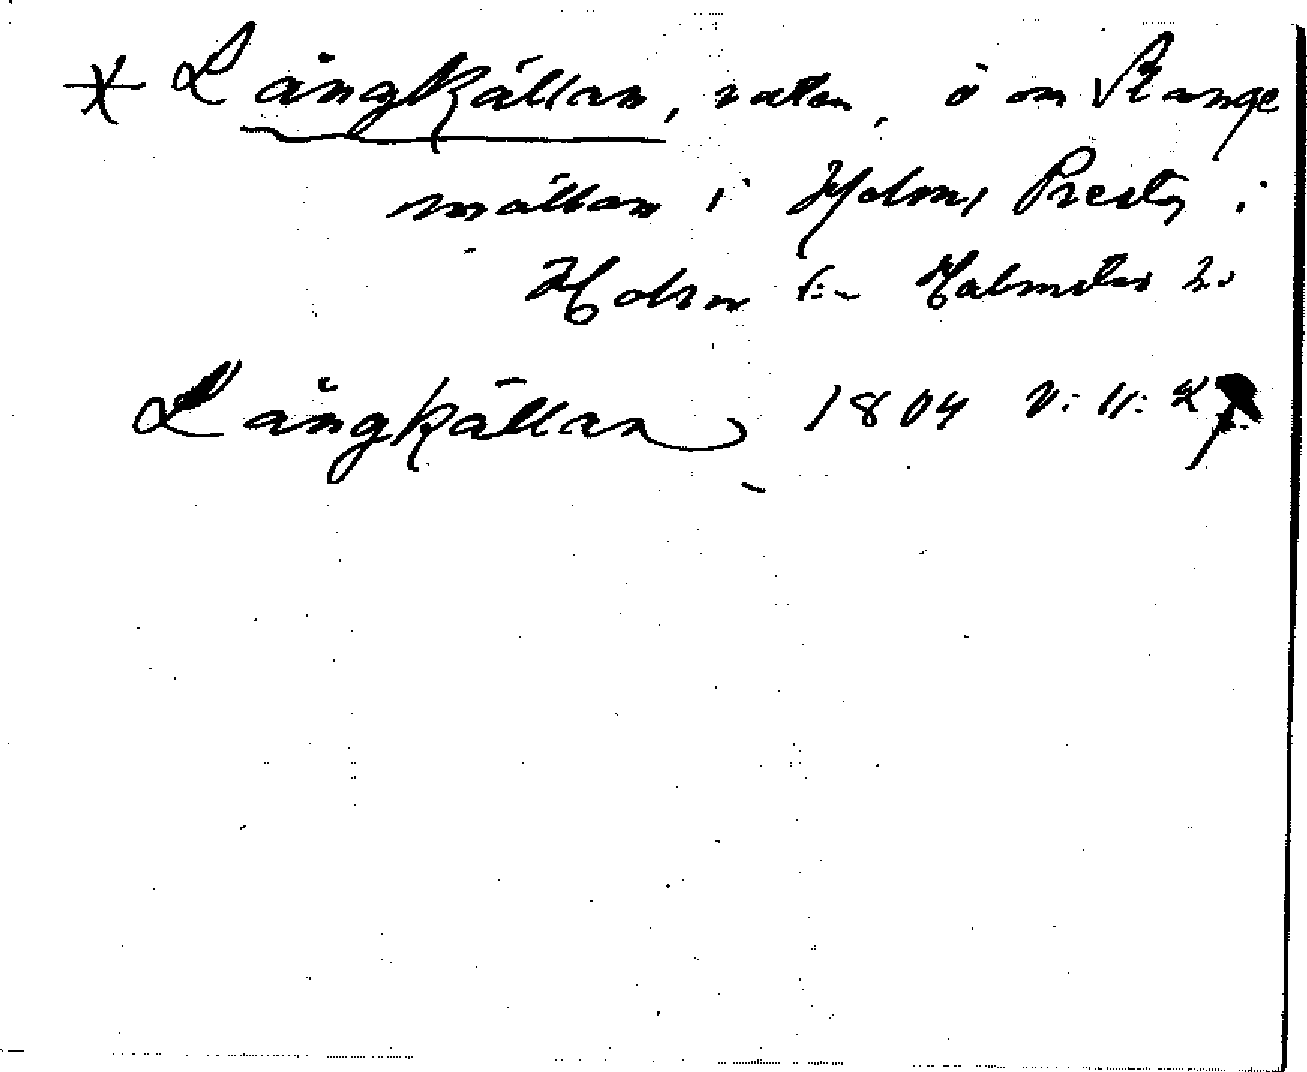 * Långkällan, vatten, ö om Stange
mållan i Holms Prestg i
Holm sn Halmstad h.
Långkällan 1804 V: U: 2